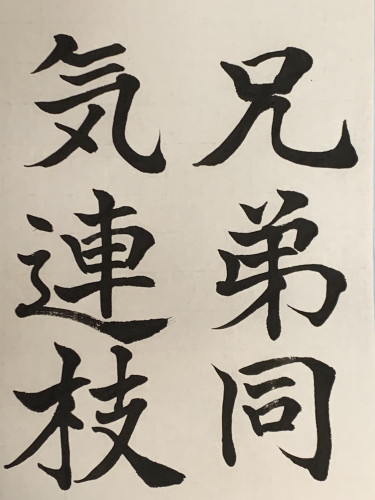 兄弟同
気連枝